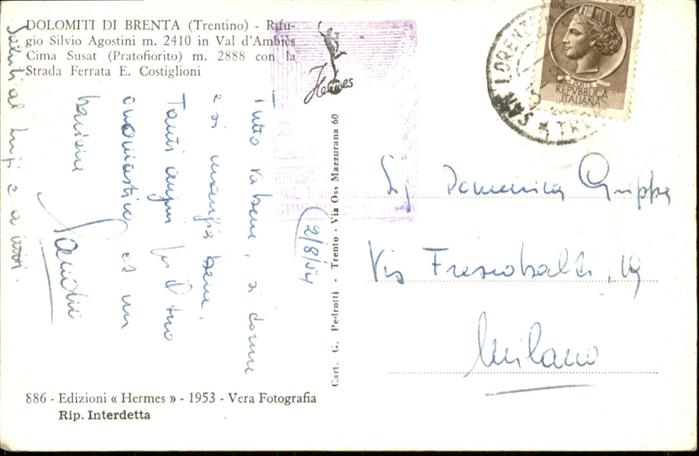 DOLOMITI DI BRENTA (Trentino) - Rifu-
gio Silvio Agostini m. 2410 in Val d'Ambiès
Cima Susat (Pratofiorito) m. 2888 con la
Strada Ferrata E. Costiglioni
Hermes
Tutto va bene, si dorme
e si mangia bene.
Tanti auguri per il tuo
onomastico e un
bacione
Sandro
Saluti ai
e a
(2/8/54
886 - Edizioni « Hermes » - 1953 - Vera Fotografia
Rip. Interdetta
Cart. G. Pedrotti - Trento - Via Oss Mazzurana 60
20
REPVBBLICA
ITALIANA
SAN LORENZO
Sig Domenica Grippa
Via Frescobaldi, 19
Milano